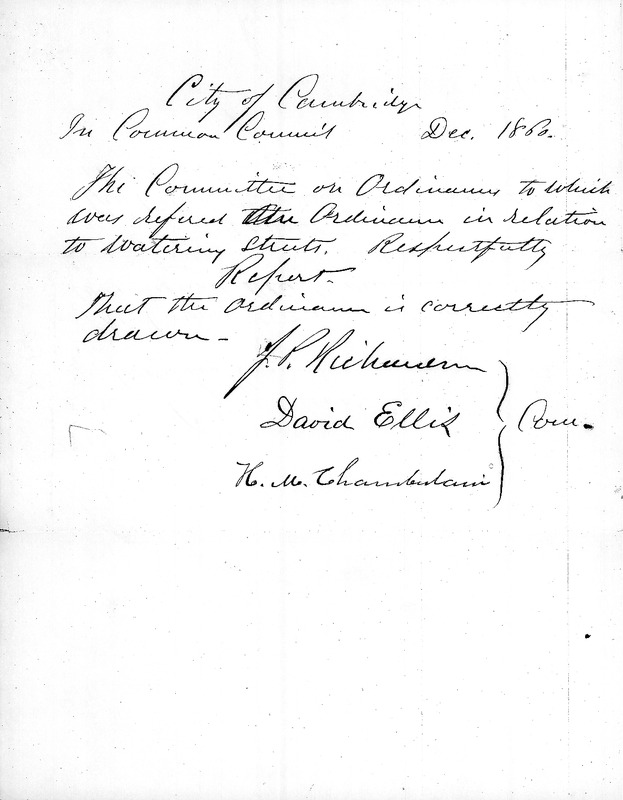 City of Cambridge
In Common Council Dec. 1860.
The Committee on Ordinances to which
was refered the Ordinance in relation
to watering streets. Respectfully
Report.
That the Ordinance is correctly
drawn -
J. P. Richardson
David Ellis
Com.
H. M. Chamberlain